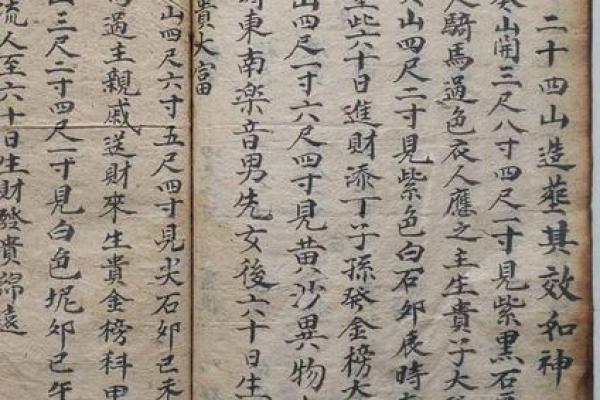 二十四山造葬其效和神
山開三尺八寸四尺一寸見紫黑石
人騎馬過色衣人應之主生貴子大
山四尺二寸見紫色白石卯辰時
至些六十日進財添丁子孫發金榜大
山四尺一寸六尺四寸見黄沙異物
時東南樂音男先女後六十日生
貴大富
山四尺六寸五尺四寸見尖石卯巳未
過主親戚送財來生貴金榜科甲
三尺二寸四尺一寸見白色坭卯巳午
流人至六十日生財發貴綿遠